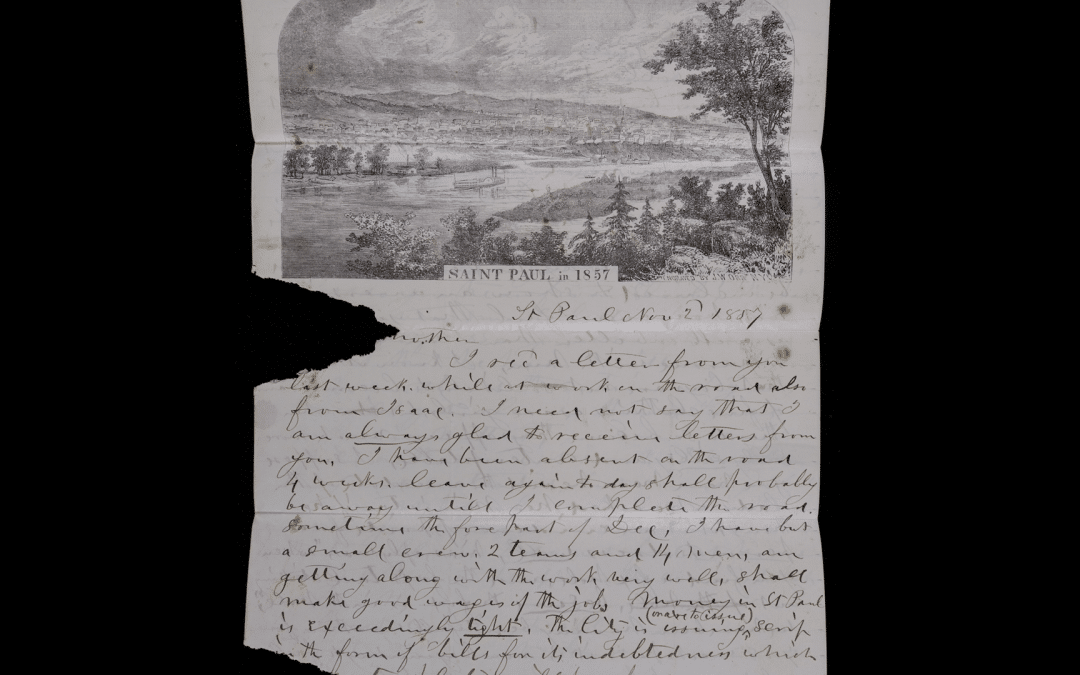 SAINT PAUL in 1857
St Paul Nov 2d 1857
I recd a letter from you
last week. while at work on the road also
from Isaac. I need not say that I
am always glad to receive letters from
you. I have been absent on the road
4 weeks. leave again to day shall probably
be away untill I complete the road.
sometime the fore part of Dec, I have but
a small crew. 2 teams and 14 men, am
getting along with the work very well, shall
make good wages if the job. Money in St Paul
is exceedingly tight. The City is issuing scrip
(or are to issue)
in the form of bills for its indebtedness which